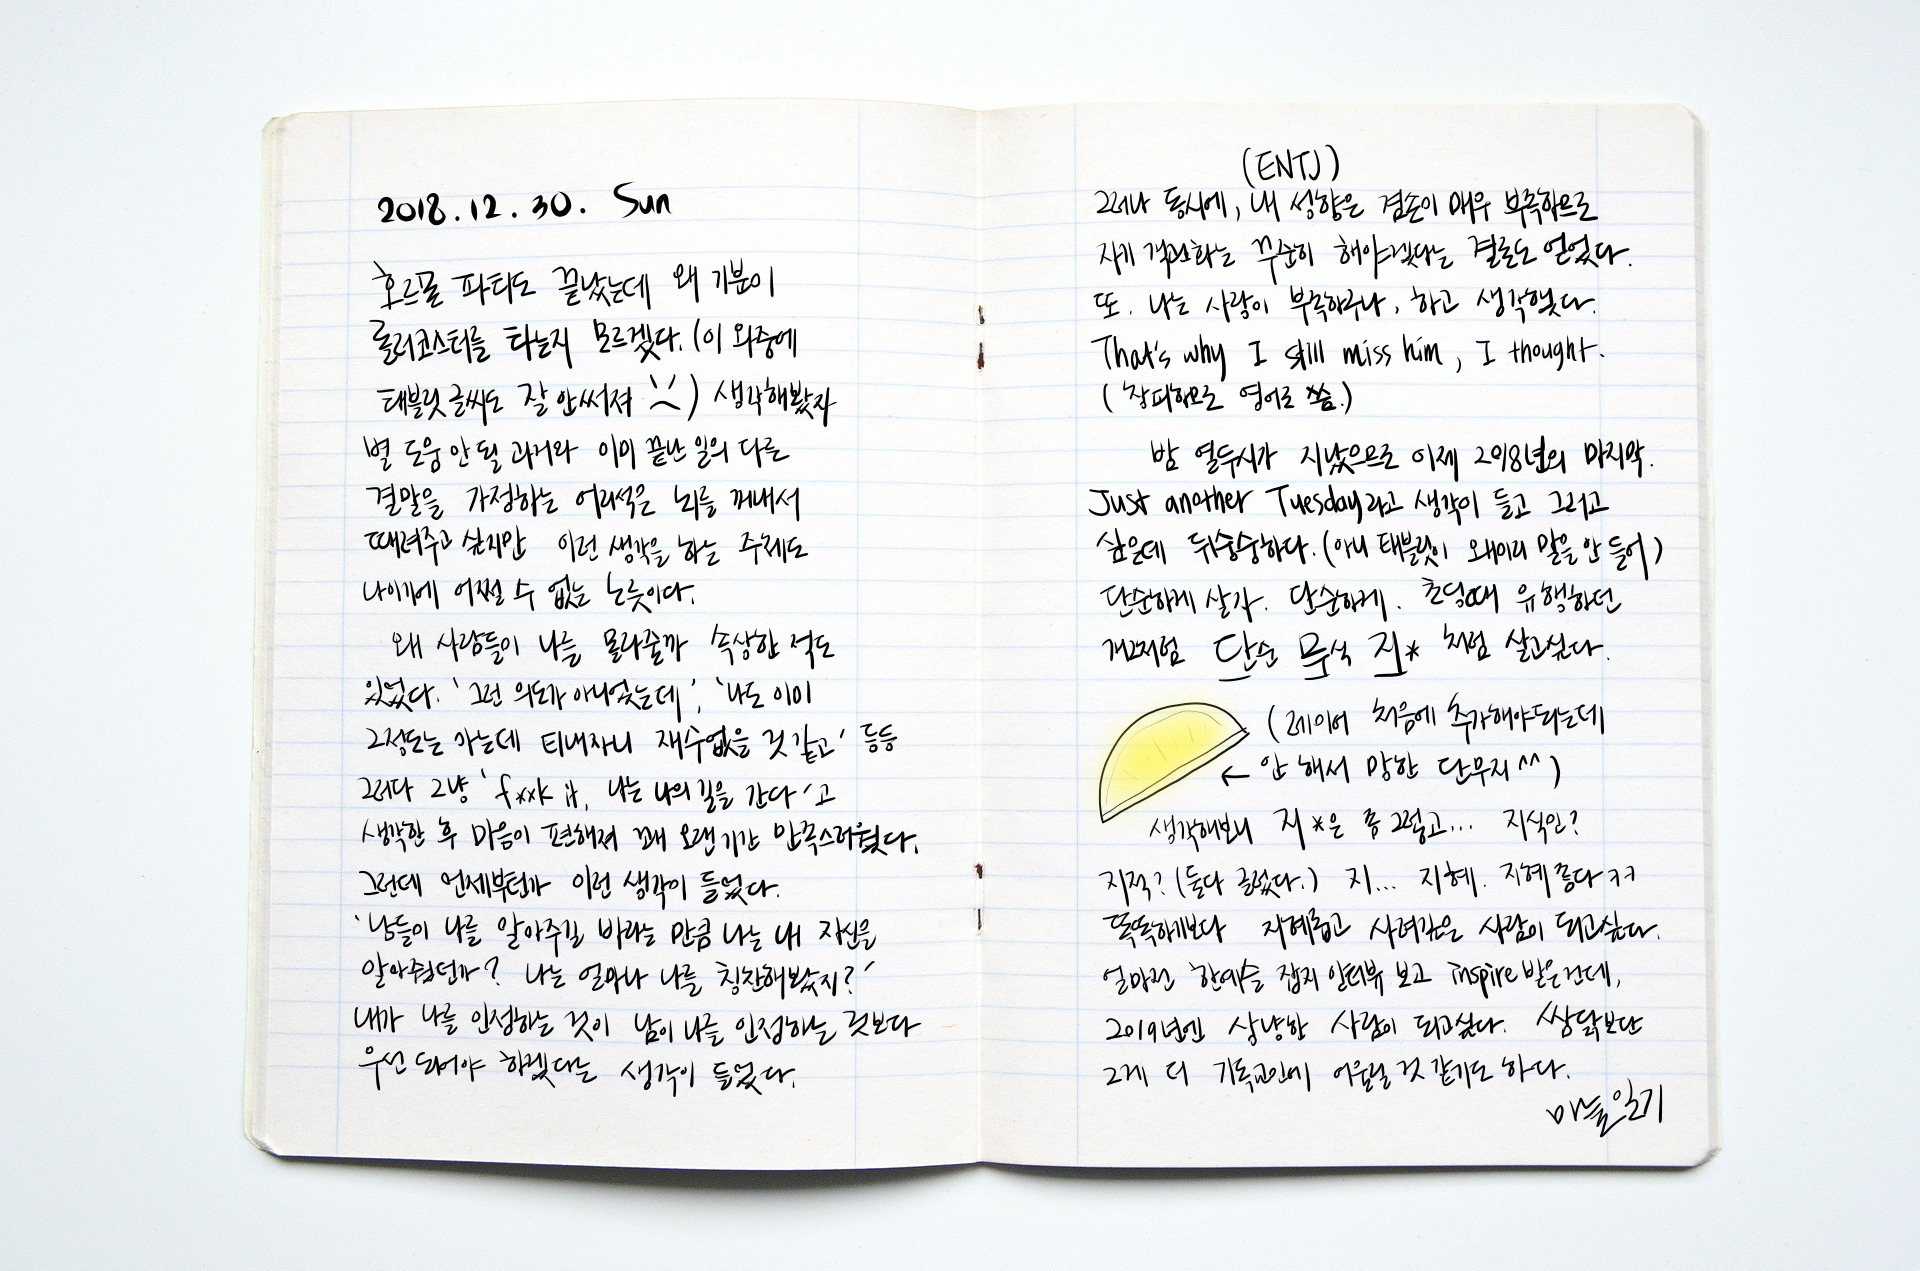 2018.12.30. Sun
호르몬 파티도 끝났는데 왜 기분이
롤러코스터를 타는지 모르겠다. (이 와중에
태블릿 글씨도 잘 안써져 :() 생각해봤자
별 도움 안 될 과거와 이미 끝난 일의 다른
결말을 가정하는 어리석은 뇌를 꺼내서
때려주고 싶지만 이런 생각을 하는 주체도
나이기에 어쩔 수 없는 노릇이다.
왜 사람들이 나를 몰라줄까 속상한 적도
있었다. '그런 의도가 아니었는데', '나도 이미
그정도는 아는데 티내자니 재수없을 것 같고' 등등
그러다 그냥 'f**k it, 나는 나의 길을 간다'고
생각한 후 마음이 편해져 꽤 오랜기간 만족스러웠다.
그런데 언제부턴가 이런 생각이 들었다.
'남들이 나를 알아주길 바라는 만큼 나는 내 자신을
알아줬던가? 나는 얼마나 나를 칭찬해봤지?'
내가 나를 인정하는 것이 남이 나를 인정하는 것보다
우선 되어야 하겠다는 생각이 들었다.
(ENTJ)
그러나 동시에, 내 성향은 겸손이 매우 부족하므로
자기 객관화는 꾸준히 해야겠다는 결론도 얻었다.
또. 나는 사랑이 부족하구나, 하고 생각했다.
That's why I still miss him, I thought.
(창피하므로 영어로 씀.)
밤 열두시가 지났으므로 이제 2018년의 마지막.
Just another Tuesday라고 생각이 들고 그러고
싶은데 뒤숭숭하다. (아니 태블릿이 왜이리 말을 안 들어)
단순하게 살자. 단순하게. 초딩때 유행하던
개그처럼 단순 무식 지* 처럼 살고싶다.
(레이어 처음에 추가해야되는데
← 안 해서 망한 단무지^^)
생각해보니 지*은 좀 그렇고... 지식인?
지적? (둘다 글렀다.) 지... 지혜. 지혜 좋다 ㅋㅋ
똑똑하기보다 지혜롭고 사려깊은 사람이 되고싶다.
얼마전 한예슬 잡지 인터뷰 보고 inspire 받은건데,
2019년엔 상냥한 사람이 되고싶다. 쌈닭보단
그게 더 기독교인에 어울릴 것 같기도 하다.
마늘일기